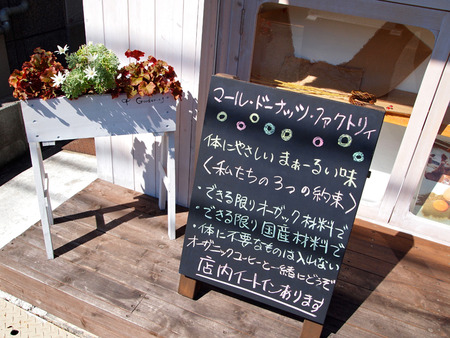 マール・ドーナッツ・ファクトリィ
体にやさしい まぁーるい味
〈私たちの3つの約束〉
・できる限りオーガニック材料で
・できる限り国産材料で
・体に不要なものは入れない
オーガニックコーヒーと一緒にどうぞ
店内イートインあります